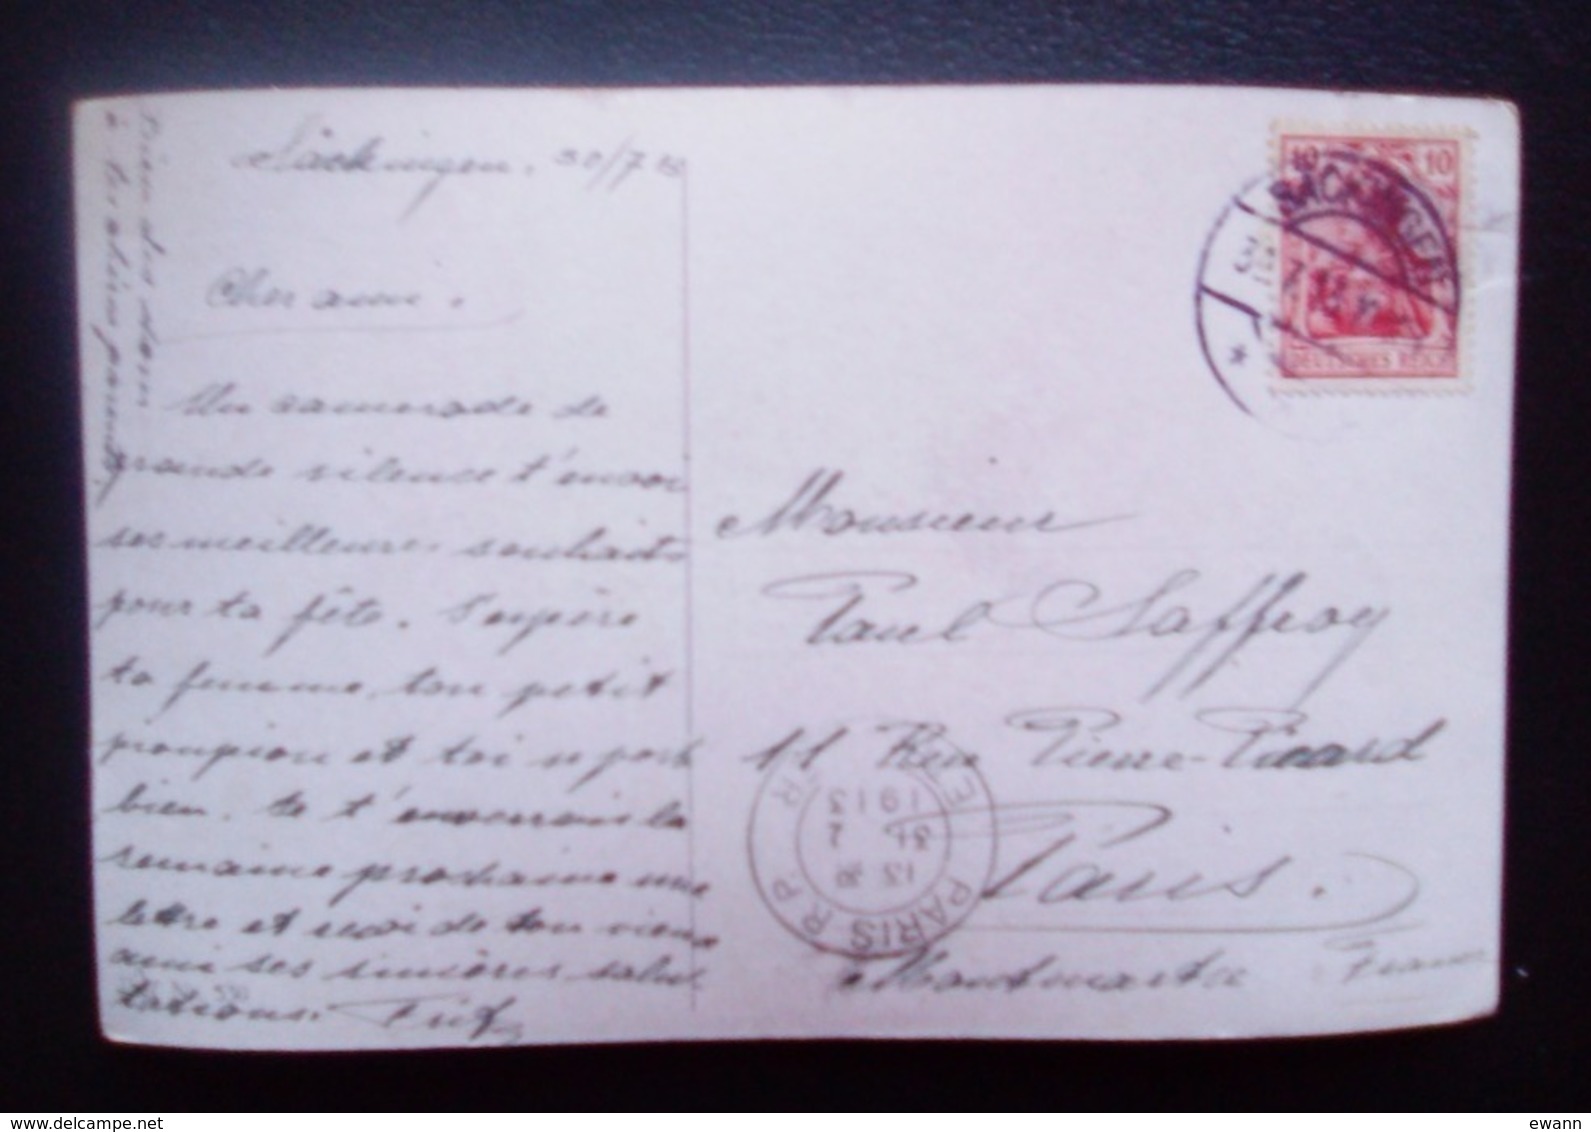 Säckingen. 30/7 13
Cher ami.
Un camerade de
grande silence t'envoie
ses meilleures souhaits
pour ta fête. J'espère
ta femme, ton petit
pioupiou et toi se port
bien. Je t'enverrais la
semaine prochaine une
lettre et reçoi de ton vieux
ami ses sincères salu
tations. Fritz
à tes chers parents
SÄCKINGEN
7 13
10 10
DEUTSCHES REICH
Monsieur
Paul Saffroy
11 Rue Pierre-Picard
Paris.
Montmartre France
PARIS R.P.
13 30
31 7
1913
ETR
delcampe.net
ewann